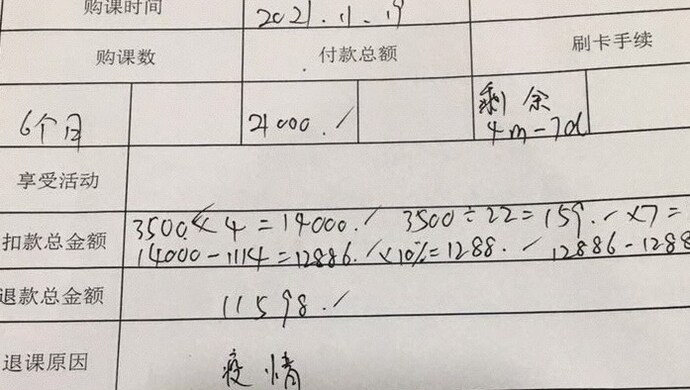 购课时间 2021.11.19
购课数 付款总额 刷卡手续
6个月 21000./ 剩余
4m-7d
享受活动
3500×4=14000./ 3500÷22=159./×7=
扣款总金额 14000-1114=12886./×10%=1288./ 12886-1288
退款总金额 11598./
退课原因 疫情